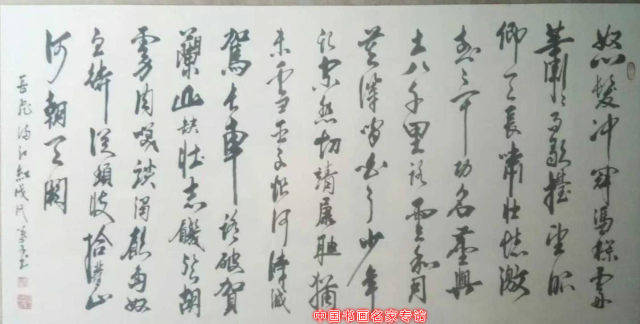 怒髮冲冠馮欄處
萧萧雨歇擡望眼
仰天長嘯壮懷激
烈三十功名塵與
土八千里路雲和月
莫等闲白了少年
头空悲切靖康耻猶
未雪臣子恨何時滅
駕長車踏破賀
蘭山缺壮志饑餐胡
虜肉笑談渴飲匈奴
血待從頭收拾舊山
河朝天闕
岳飛满江红
中国书画名家专馆